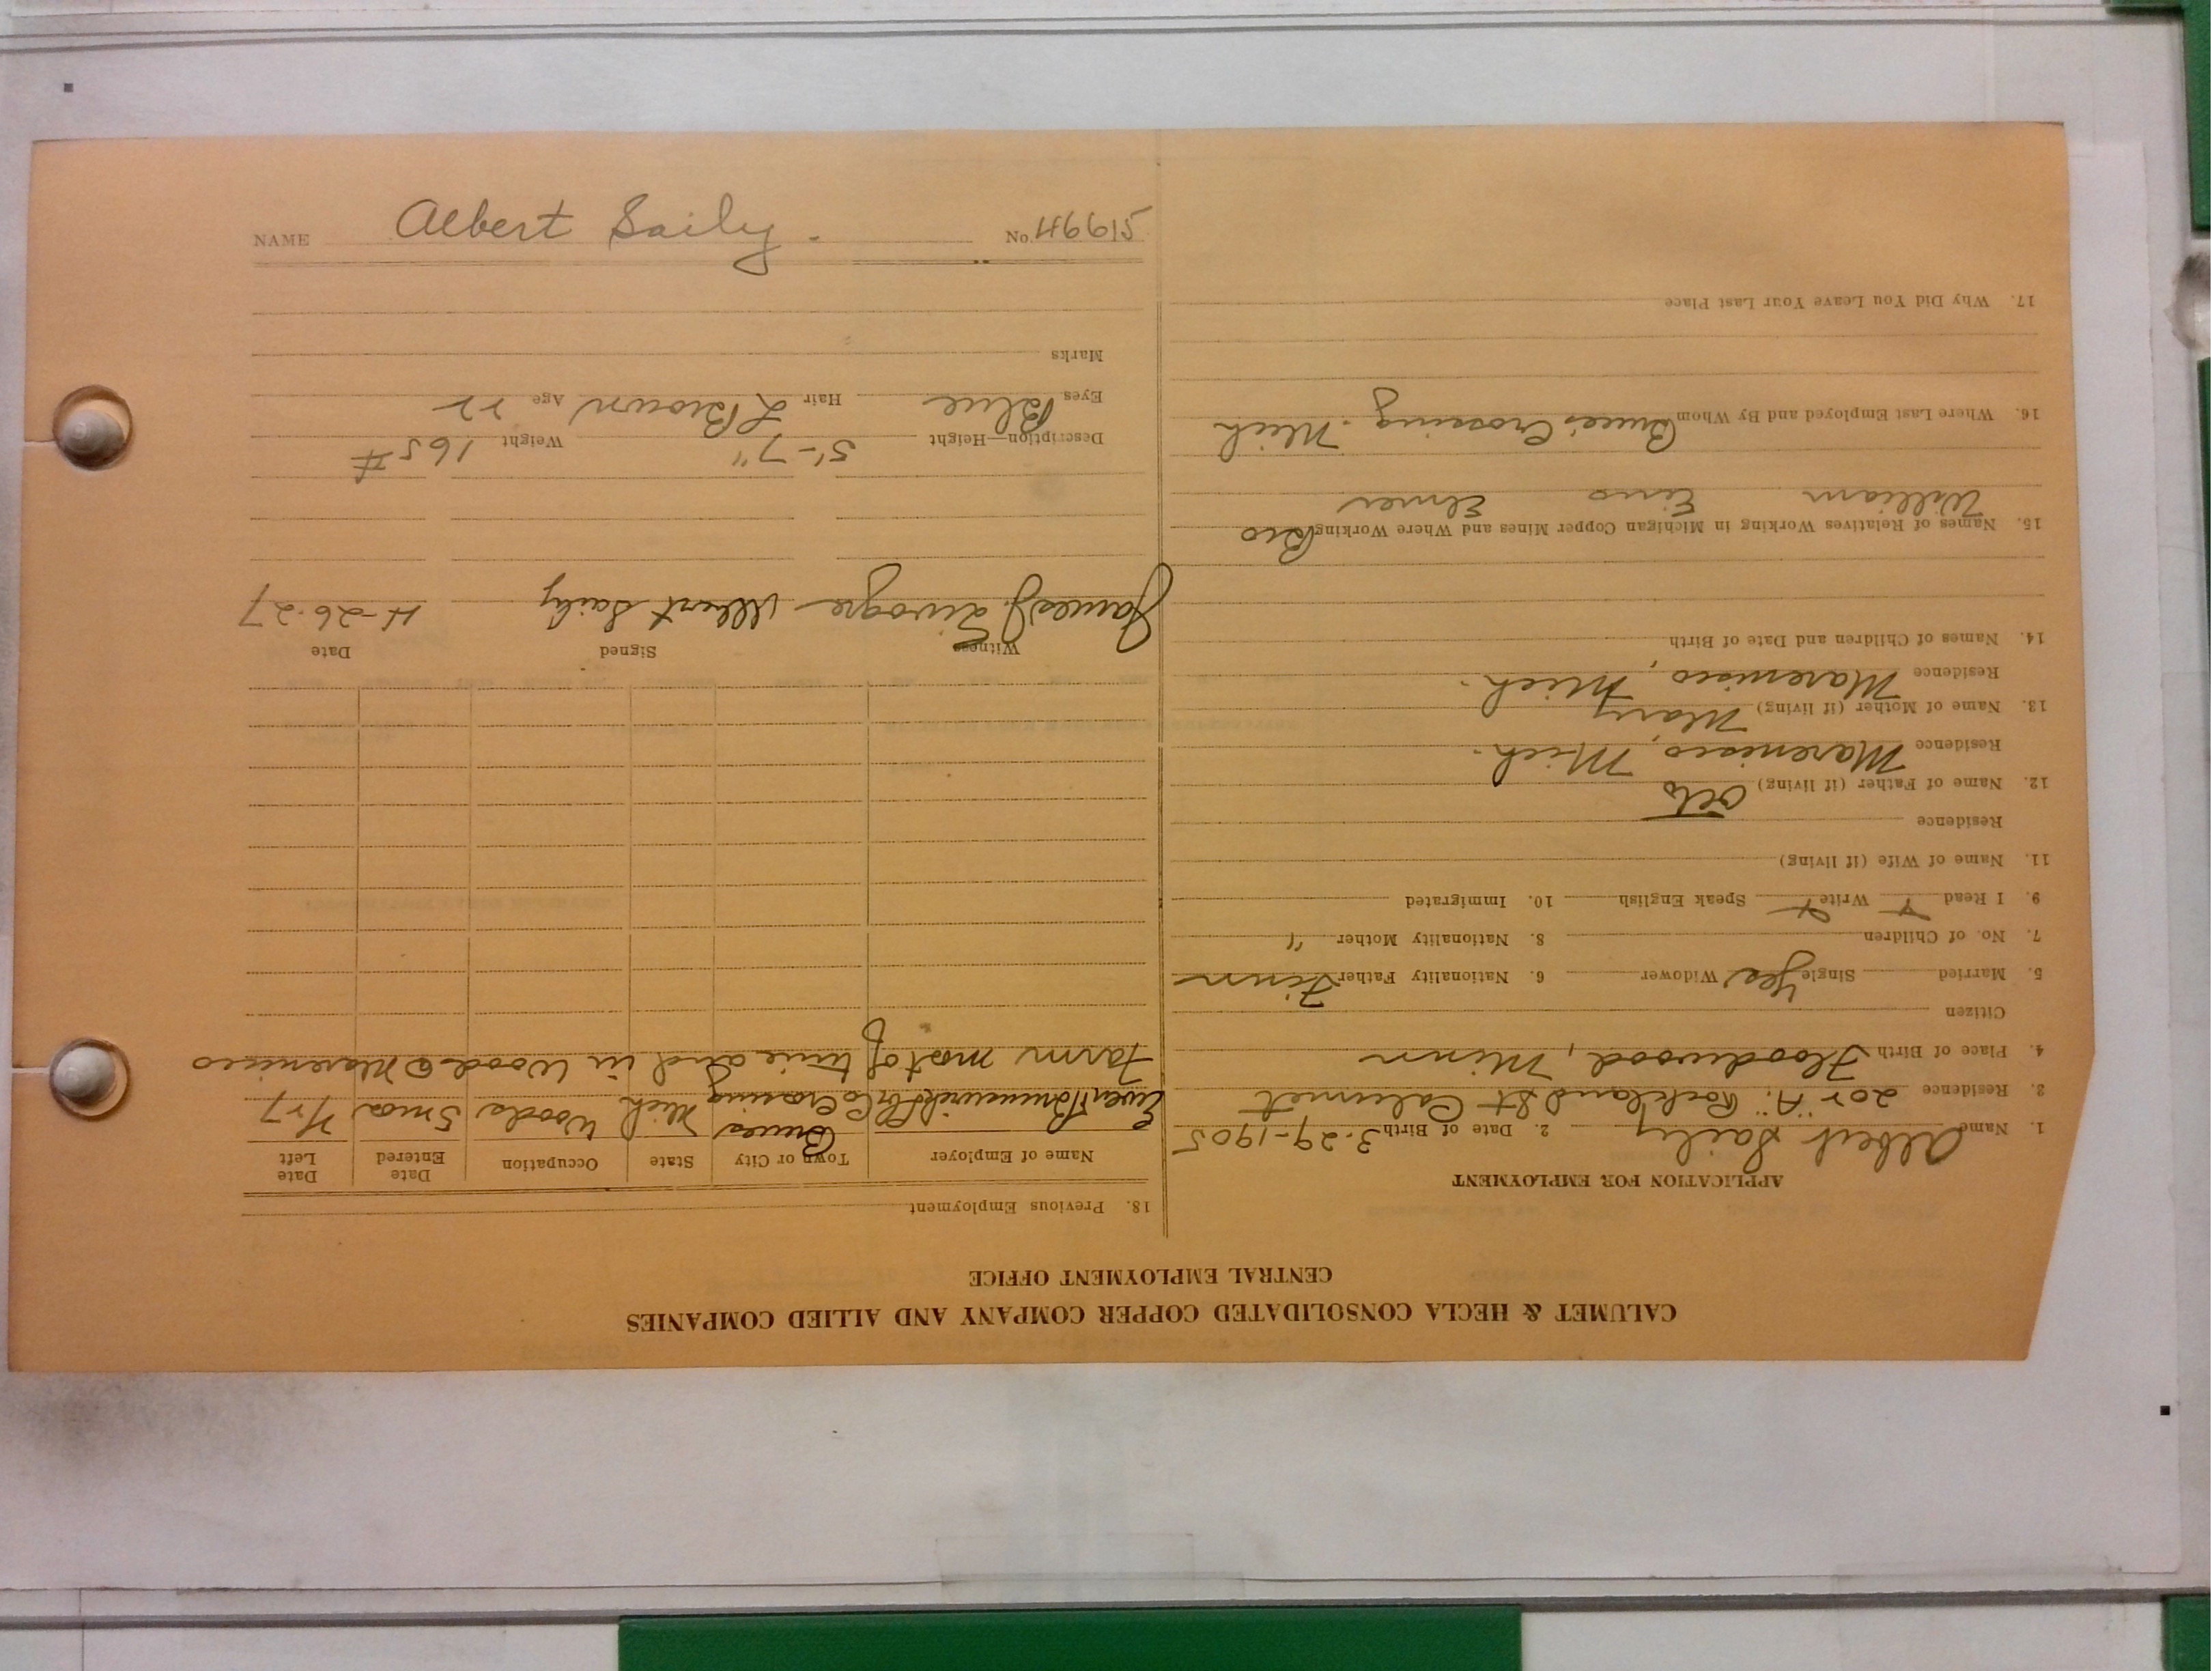 CALUMET & HECLA CONSOLIDATED COPPER COMPANY AND ALLIED COMPANIES
CENTRAL EMPLOYMENT OFFICE
APPLICATION FOR EMPLOYMENT
1. Name Albert Saily 2. Date of Birth 3-29-1905
3. Residence 202 "A" Rockland St Calumet
4. Place of Birth Floodwood, Minn
Citizen
5. Married Single Yes Widower 6. Nationality Father Finn
7. No. of Children 8. Nationality Mother "
9. I Read Write Speak English 10. Immigrated
11. Name of Wife (if living)
Residence
12. Name of Father (if living) Otto
Residence Marenisco, Mich.
13. Name of Mother (if living) Mary
Residence Marenisco, Mich.
14. Names of Children and Date of Birth
15. Names of Relatives Working in Michigan Copper Mines and Where Working Bro
William Eino Elmer
16. Where Last Employed and By Whom Bruces Crossing. Mich
17. Why Did You Leave Your Last Place
18. Previous Employment
Name of Employer Town or City State Occupation Date Entered Date Left
Bruces Crossing Mich Woods 5 mos
Farm most of time and in Woods @ Marenisco
Witness Signed Date
James J. Albert Saily 4-26-27
Description—Height 5'-7" Weight 165 #
Eyes Blue Hair L Brown Age 22
Marks
NAME Albert Saily. No. 49915